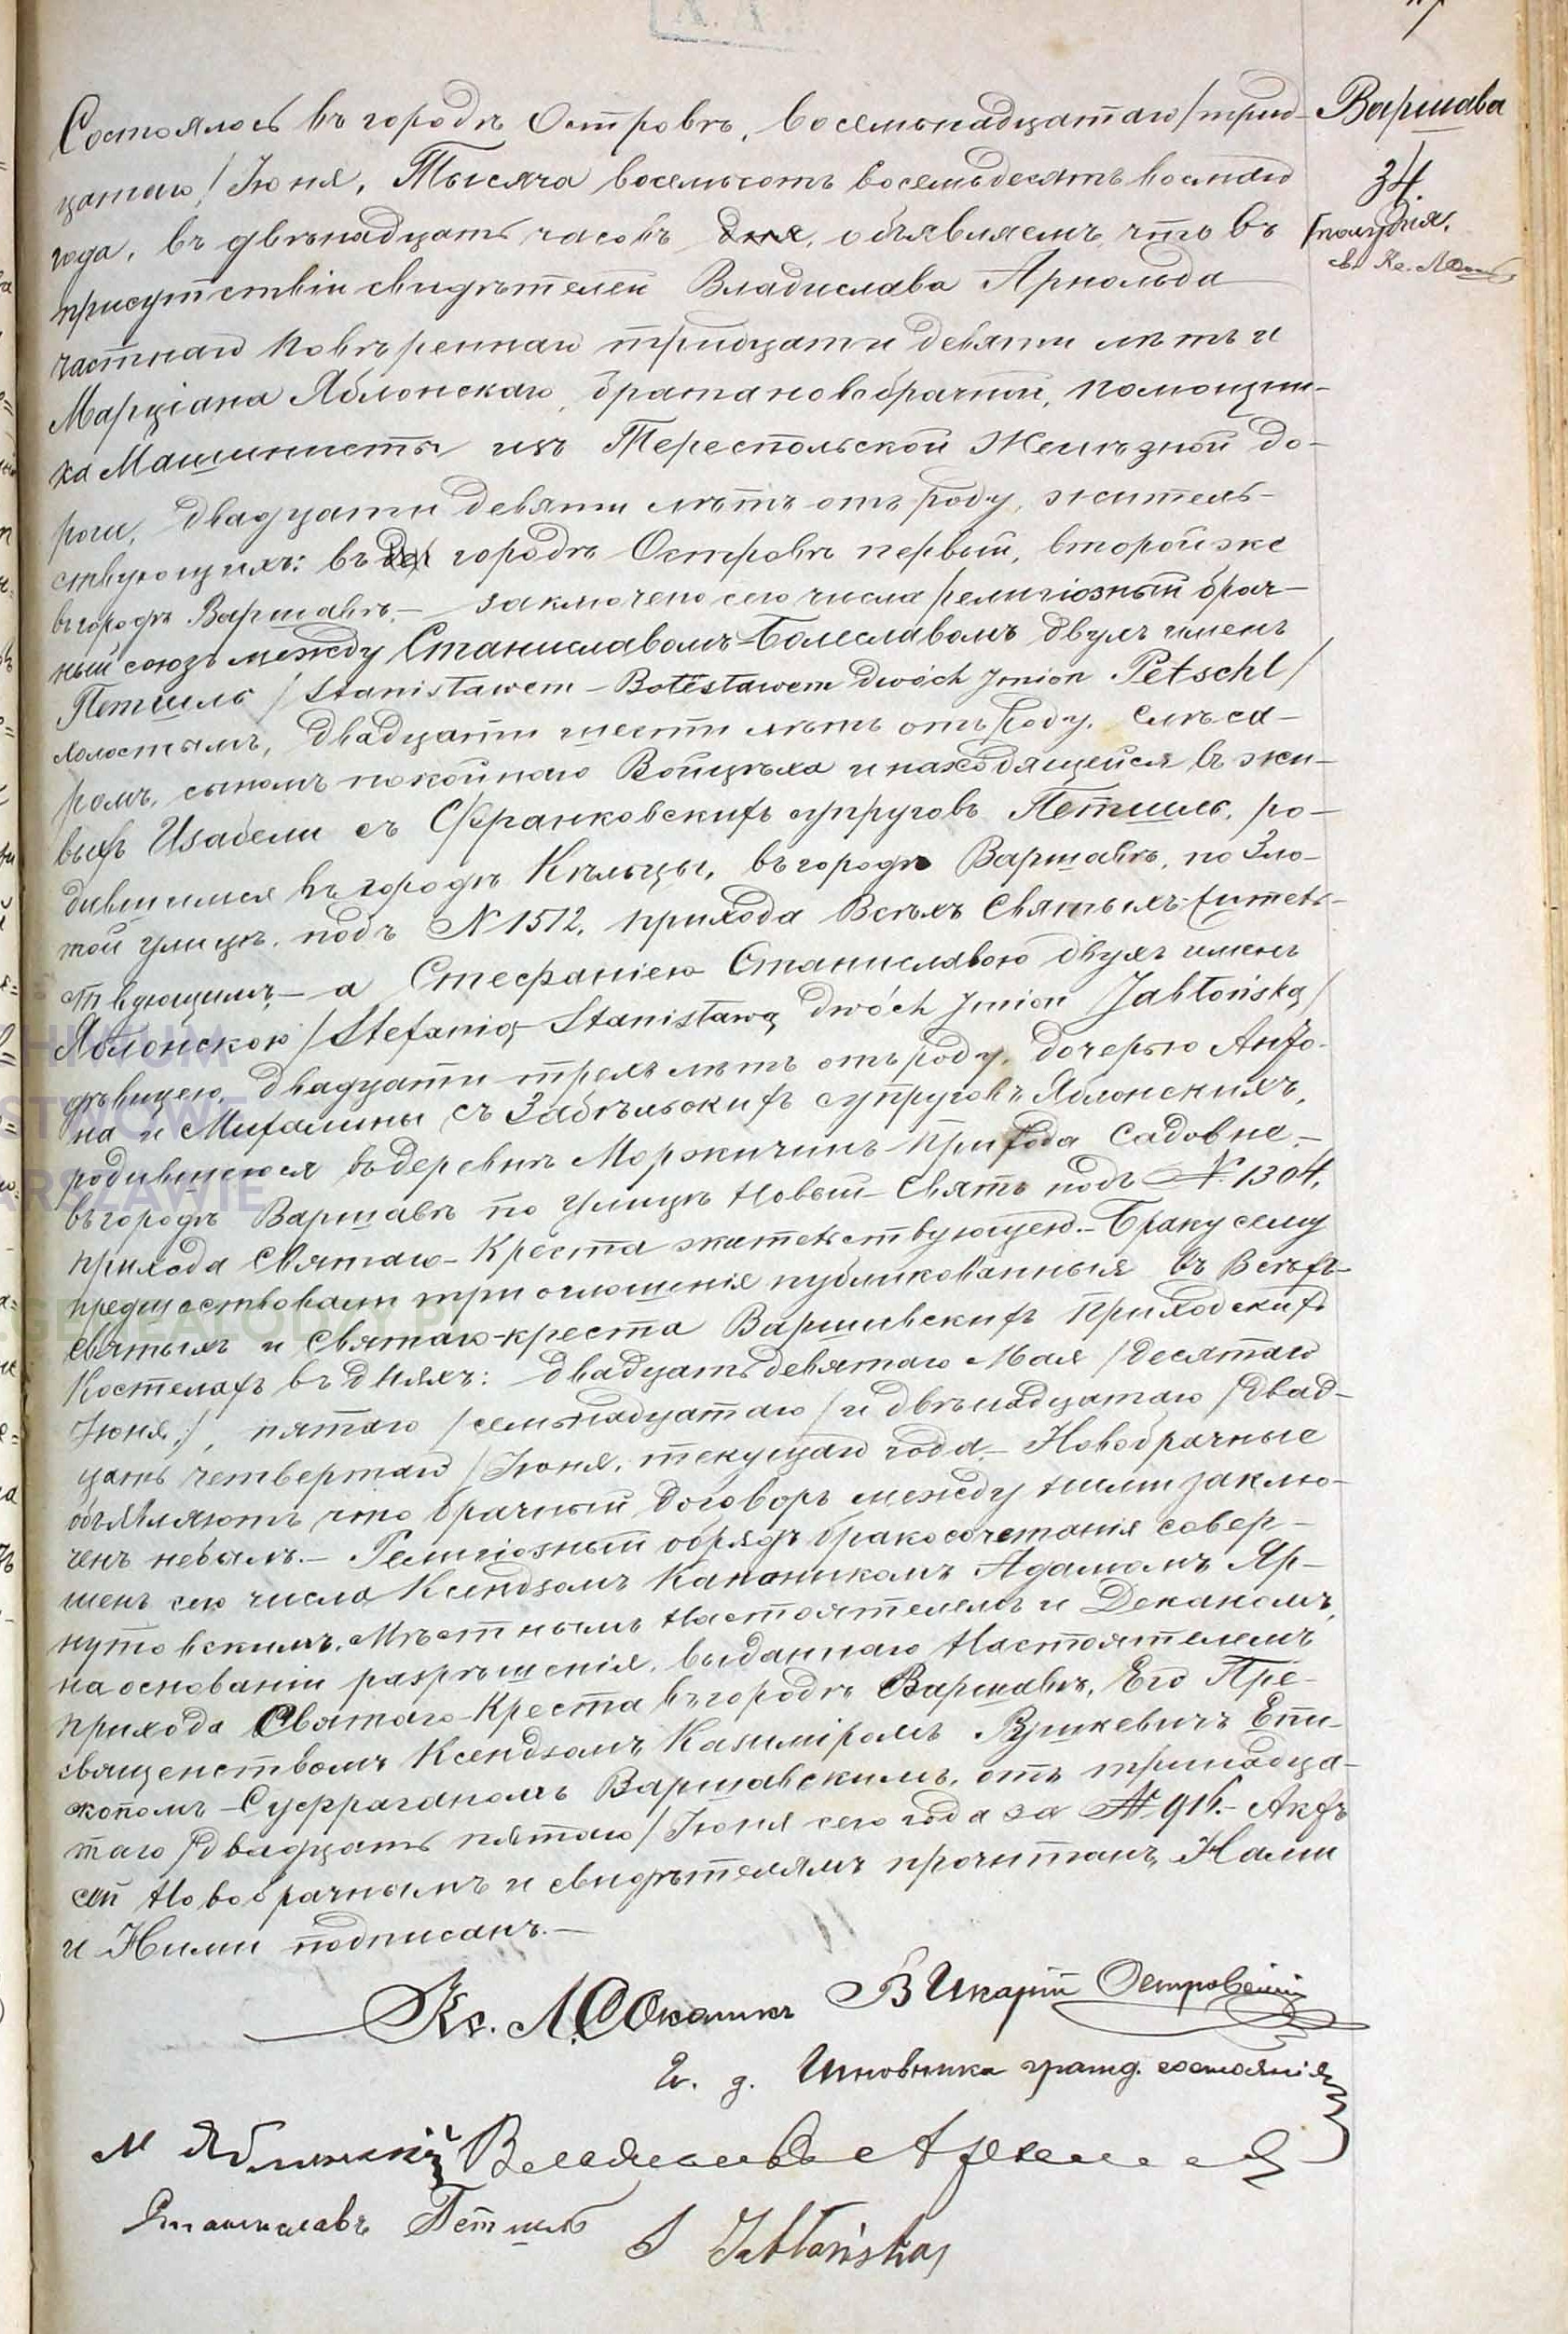 Варшава
34
/полудня,
Кс.
Состоялось въ городѣ Островѣ, восемьнадцатаго /трид-
цатаго/ Іюня, Тысяча восемьсотъ восемьдесятъ восьмаго
года, въ двѣнадцать часовъ дня, объявляемъ что въ
присутствіи свидѣтелей Владислава Арнольда
частнаго повѣреннаго тридцати девяти лѣтъ и
Марціана Яблонскаго, брата новобрачной, помощни-
ка Машиниста изъ Тереспольской Желѣзной до-
роги, двадцати девяти лѣтъ отъ роду, житель-
ствующихъ: въ городѣ Островѣ первый, второй же
въ городѣ Варшавѣ. — заключено сего числа религіозный брач-
ный союзъ между Станиславомъ-Болеславомъ двухъ именъ
Петшль /Stanisławem-Bolesławem dwóch Imion Petschl/
холостымъ, двадцати шести лѣтъ отъ роду, слѣса-
ремъ, сыномъ покойнаго Войцѣха и находящейся въ жи-
выхъ Изабели съ Франковскихъ супруговъ Петшль, ро-
дившимся въ городѣ Кѣльцы, въ городѣ Варшавѣ, по Зло-
той улицѣ, подъ N 1512, прихода Всѣхъ Святыхъ житель-
ствующимъ, — а Стефаніею Станиславою двухъ именъ
Яблонскою /Stefanią-Stanisławą dwóch Imion Jabłońską/
дѣвицею, двадцати трехъ лѣтъ отъ роду, дочерью Анто-
на и Михалины съ Забѣльскихъ супруговъ Яблонскихъ,
родившеюся въ деревнѣ Моржичинъ прихода Садовне, —
въ городѣ Варшавѣ по улицѣ Новый-Святъ подъ N. 1304,
прихода Святаго-Креста жительствующею. — Браку сему
предшествовали три оглошенія публикованныя въ Всѣхъ-
Святыхъ и Святаго-креста Варшавскихъ Приходскихъ
Костелахъ въ дняхъ: двадцать девятаго Мая /десятаго
Іюня/, пятаго /семьнадцатаго/ и двѣнадцатаго /двад-
цать четвертаго/ Іюня, текущаго года. — Новобрачные
объявляютъ что брачный договоръ между ними заклю-
ченъ небылъ. — Религіозный обрядъ бракосочетанія совер-
шенъ сего числа Ксендзомъ Каноникомъ Адамомъ Яр-
нутовскимъ, Мѣстнымъ Настоятелемъ и Деканомъ,
на основаніи разрѣшенія, выданнаго Настоятелемъ
прихода Святаго-Креста въ городѣ Варшавѣ, Его Пре-
священствомъ Ксендзомъ Казиміромъ Рушкевичъ Епи-
скопомъ-Суффраганомъ Варшавскимъ, отъ тринадца-
таго /двадцать пятаго/ Іюня сего года за N 916. — Актъ
сей Новобрачнымъ и свидѣтелямъ прочитанъ, Нами
и Ними подписанъ. —
Кс. Викарій Островскій
И. д. Чиновника гражд. состоянія
М Яблонскій Владиславъ Арнольд
Станиславъ Петшль S Jabłońska